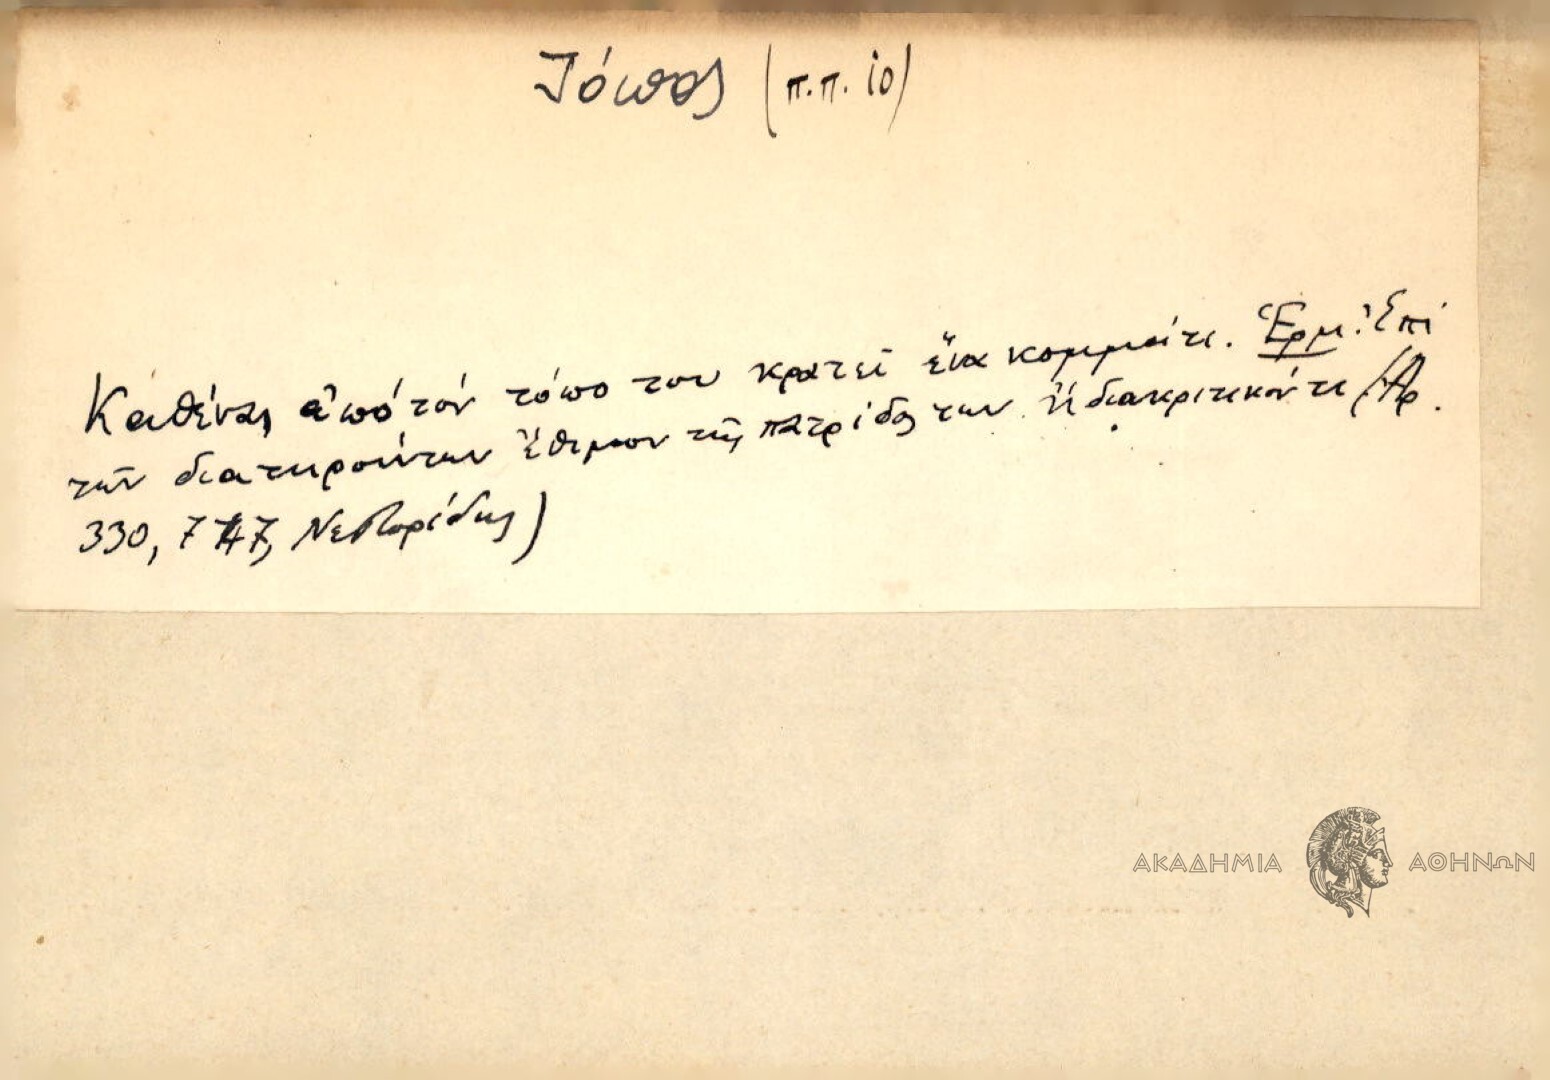 Τόπος (π.π. ἰο)
Καθένας ἀπό τόν τόπο του κρατεῖ ἕνα κομμάτι. Ἑρμ. Ἐπί
τῶν διατηρούντων ἔθιμον τῆς πατρίδος των ἤ διακριτικόν τι (Ἀρ.
330, 747, Νεστορίδης)
ΑΚΑΔΗΜΙΑ ΑΘΗΝΩΝ